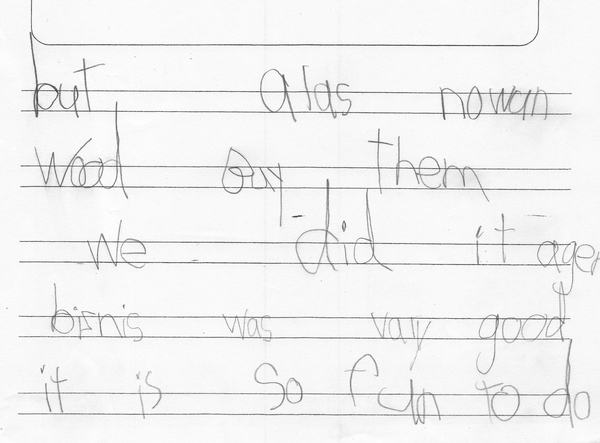 but alas nowan
wood Buy them
we did it agen
bisnis was vary good
it is So fun to do